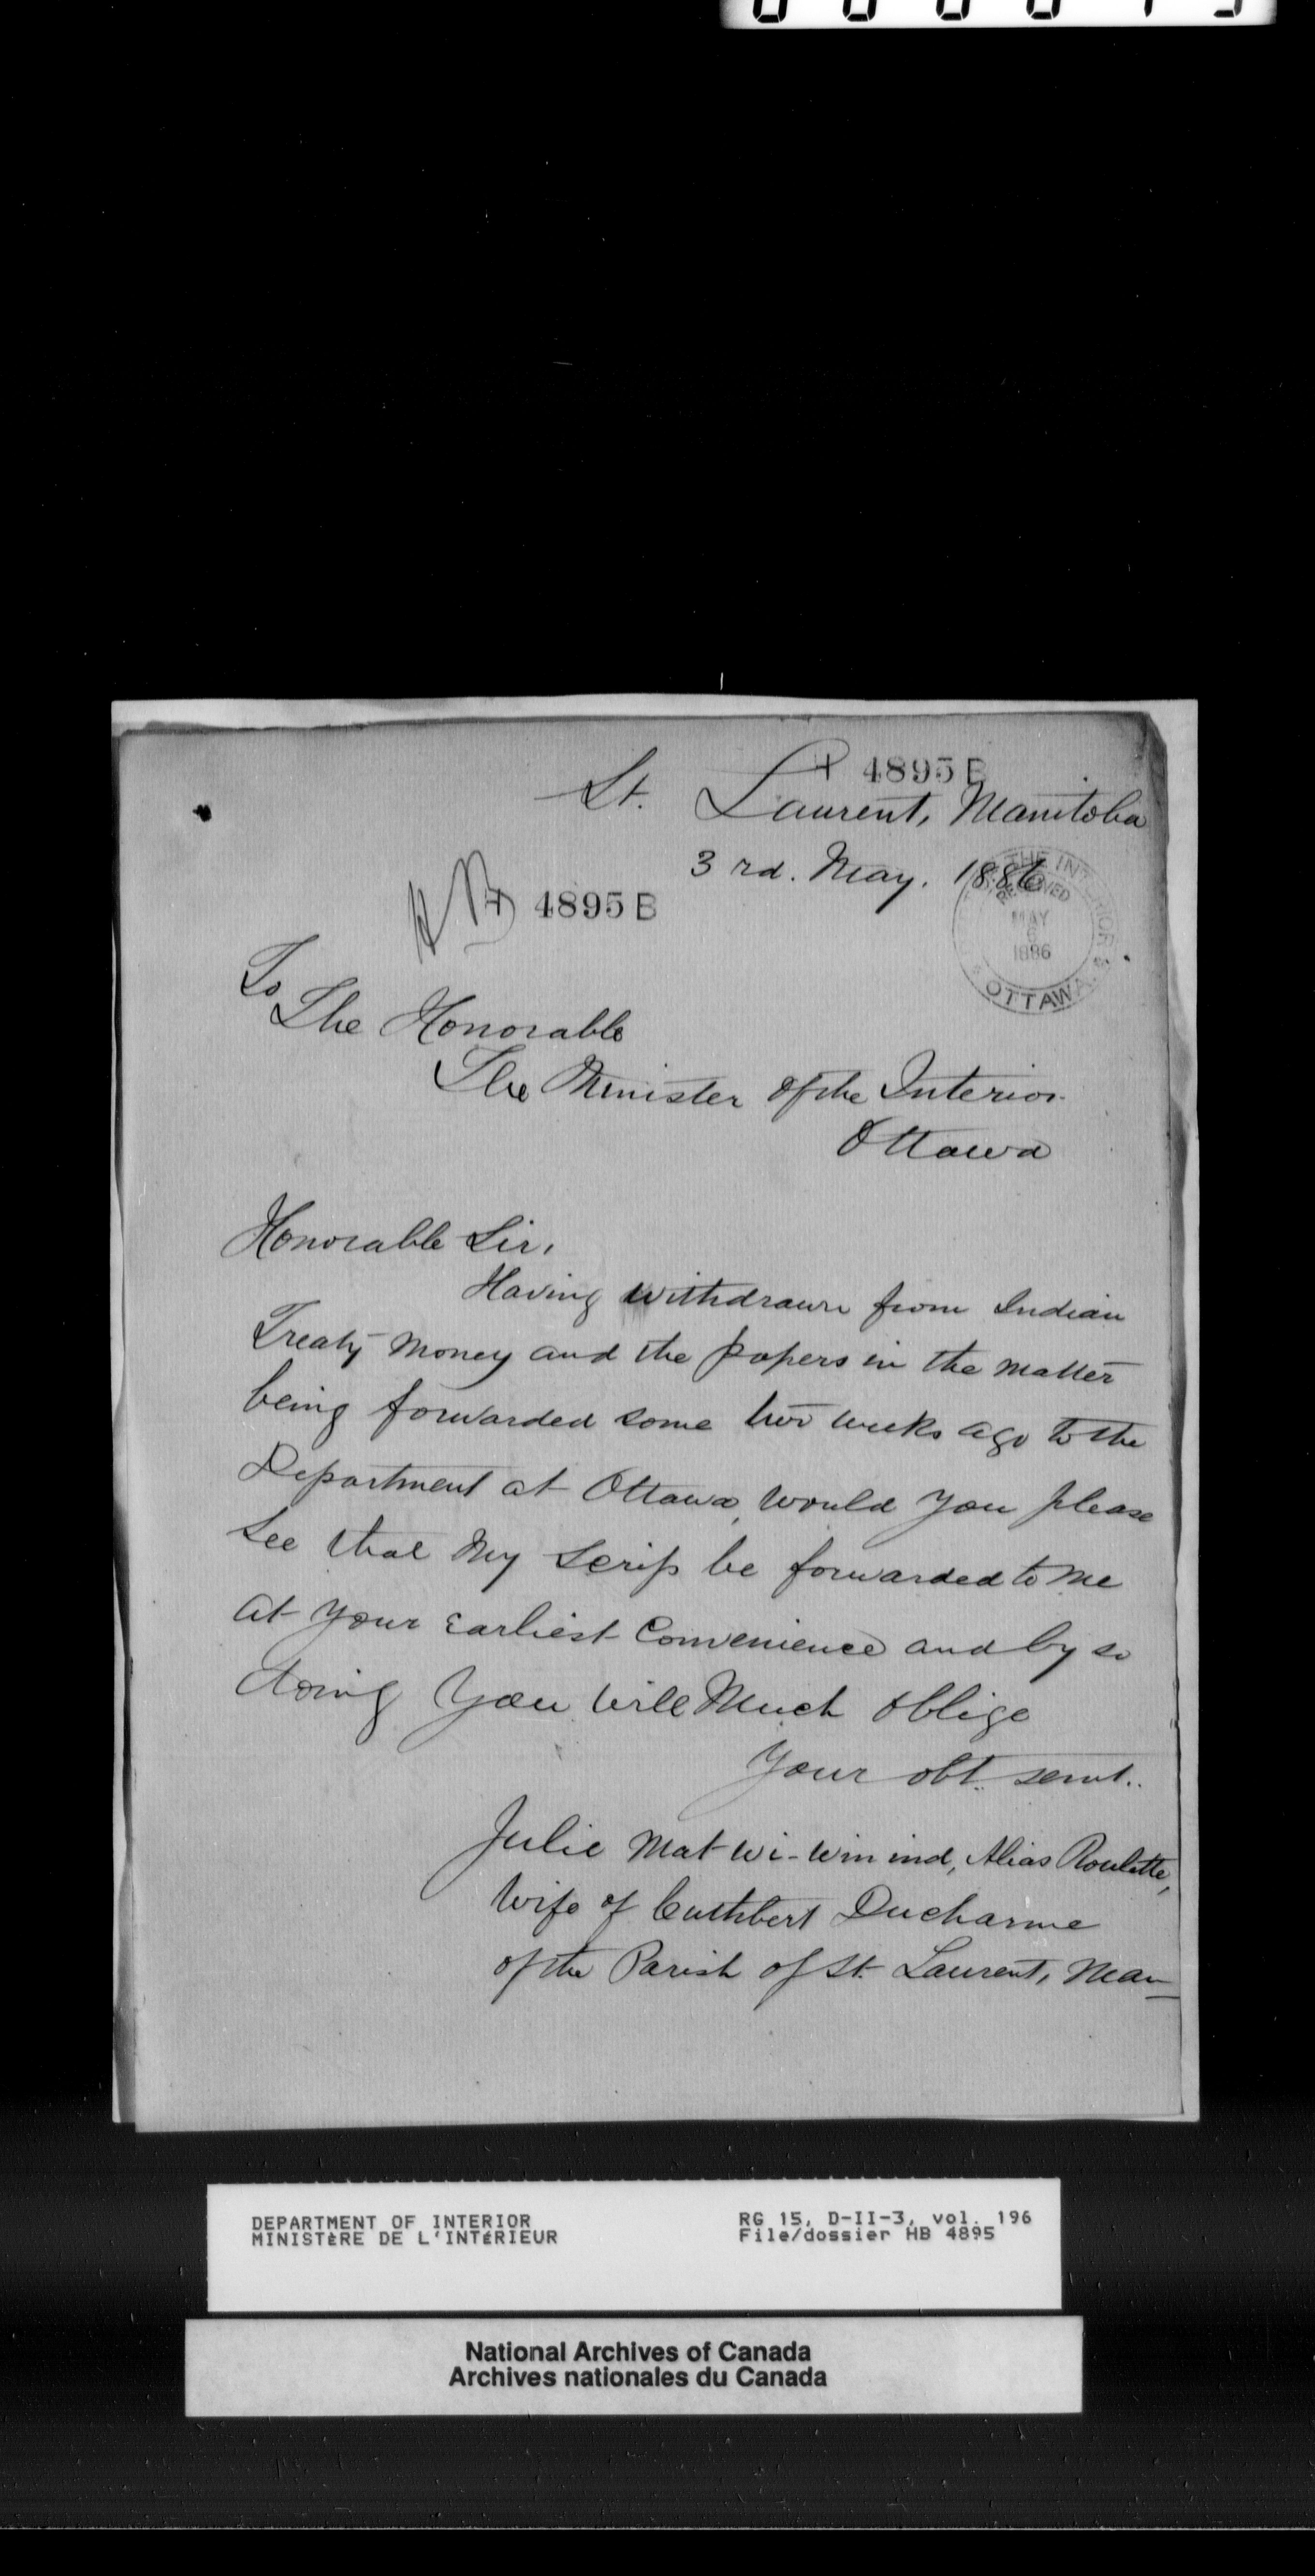 4895 B
St. Laurent, Manitoba
3 rd. May. 1886
HB 4895 B
THE INTERIOR
RECEIVED
MAY
6
1886
OTTAWA
To
The Honorable
The Minister of the Interior
Ottawa
Honorable Sir,
Having withdrawn from Indian
Treaty money and the papers in the matter
being forwarded some two weeks ago to the
Department at Ottawa, would you please
see that my scrip be forwarded to me
at your earliest convenience and by so
doing you will much oblige
Your obt. servt.
Julie Mat-wi-win ind, Alias Roulette,
wife of Cuthbert Ducharme
of the Parish of St. Laurent, Man
DEPARTMENT OF INTERIOR
MINISTÈRE DE L'INTÉRIEUR
RG 15, D-II-3, vol. 196
File/dossier HB 4895
National Archives of Canada
Archives nationales du Canada